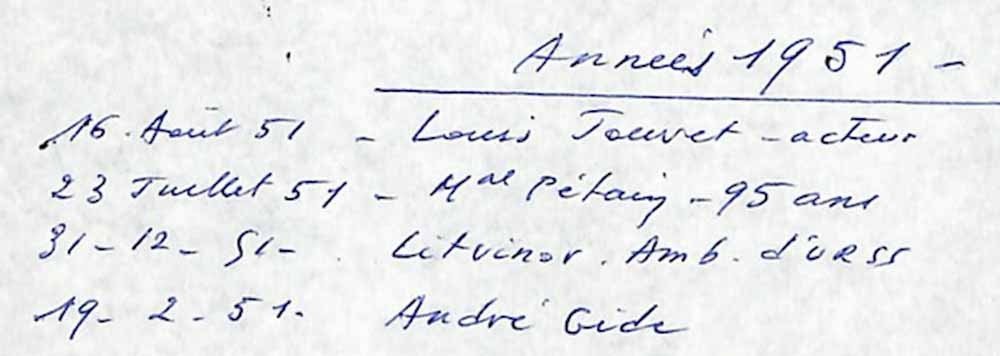 Années 1951 -
16. Août 51 - Louis Jouvet - acteur
23 Juillet 51 - Mal Pétain - 95 ans
31 - 12 - 51 - Litvinov. Amb. d'URSS
19 - 2 - 51. André Gide